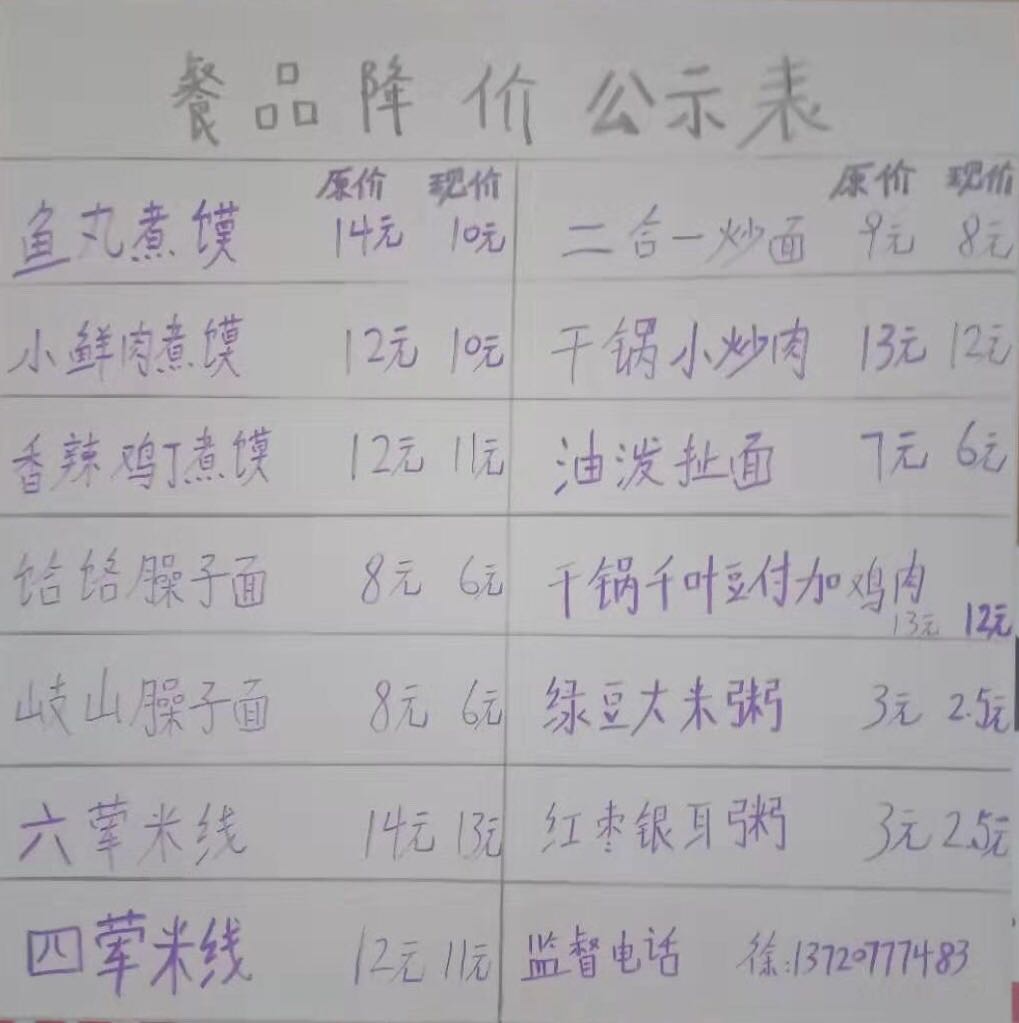 餐品降价公示表
原价 现价 原价 现价
鱼丸煮馍 14元 10元 二合一炒面 9元 8元
小鲜肉煮馍 12元 10元 干锅小炒肉 13元 12元
香辣鸡丁煮馍 12元 11元 油泼扯面 7元 6元
饸饹臊子面 8元 6元 干锅千叶豆付加鸡肉 13元 12元
岐山臊子面 8元 6元 绿豆大米粥 3元 2.5元
六荤米线 14元 13元 红枣银耳粥 3元 2.5元
四荤米线 12元 11元 监督电话 徐:13720777483